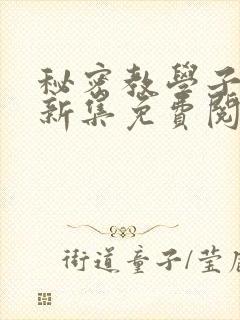 秘密教學子
新集免費閱
街道童子/莹